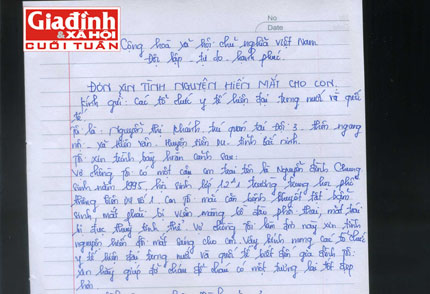 Giađình
& XÃ HỘI
CUỐI TUẦN
No
Date
Cộng hoà xã hội chủ nghĩa việt Nam
Độc lập - tự do - hạnh phúc.
ĐƠN XIN TÌNH NGUYỆN HIẾN MẮT CHO CON.
Kính gửi: Các tổ chức y tế hiện đại trong nước và quốc
tế
Tôi là: Nguyễn Thị Khánh, trú quán tại Đội 3, thôn ngang
nội - xã hiên Vân, huyện tiên Du, tỉnh bắc ninh.
Tôi xin trình bày hoàn cảnh sau:
Vợ chồng tôi có một cậu con trai tên là Nguyễn Đình Chung
sinh năm 1995, học sinh lớp 12 1 trường trung học phổ
thông tiên Du số 1. Con tôi mắc căn bệnh khuyết tật bẩm
sinh, mắt phải bị viêm màng bồ đào phù thai, mắt trái
bị đục thủy tinh thể. Vợ chồng tôi làm đơn này xin tình
nguyện hiến đôi mắt sáng cho con. Vậy kính mong các tổ chức
y tế hiện đại trong nước và quốc tế biết đến gia đình tôi
xin hãy giúp đỡ cháu để cháu có một tương lai tốt đẹp
hơn.